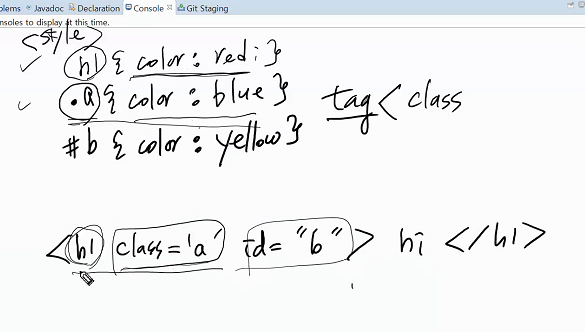 blems @ Javadoc Declaration Console Git Staging
nsoles to display at this time.
<style>
h1 { color : red; }
.a { color : blue } tag < class
#b { color : yellow }
<h1 class='a' id="b"> hi </h1>